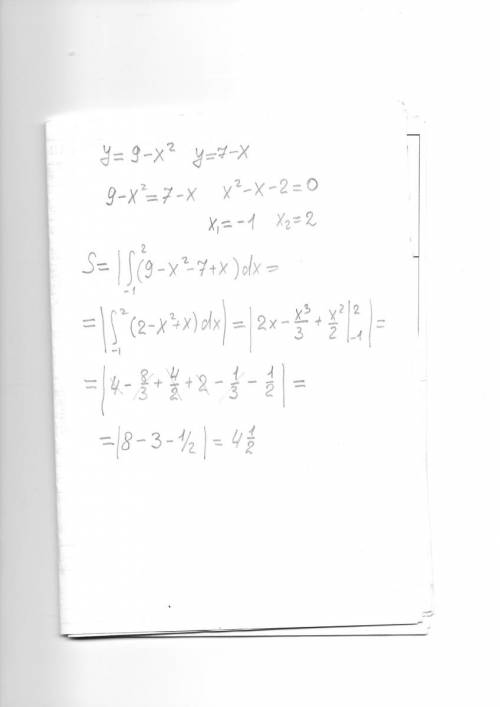 y = 9 - x² y = 7 - x
9 - x² = 7 - x x² - x - 2 = 0
x₁ = -1 x₂ = 2
S = |∫₋₁² (9 - x² - 7 + x) dx =
= |∫₋₁² (2 - x² + x) dx| = |2x - x³/3 + x²/2 |₋₁²| =
= |4 - 8/3 + 4/2 + 2 - 1/3 - 1/2| =
= |8 - 3 - 1/2| = 4 1/2